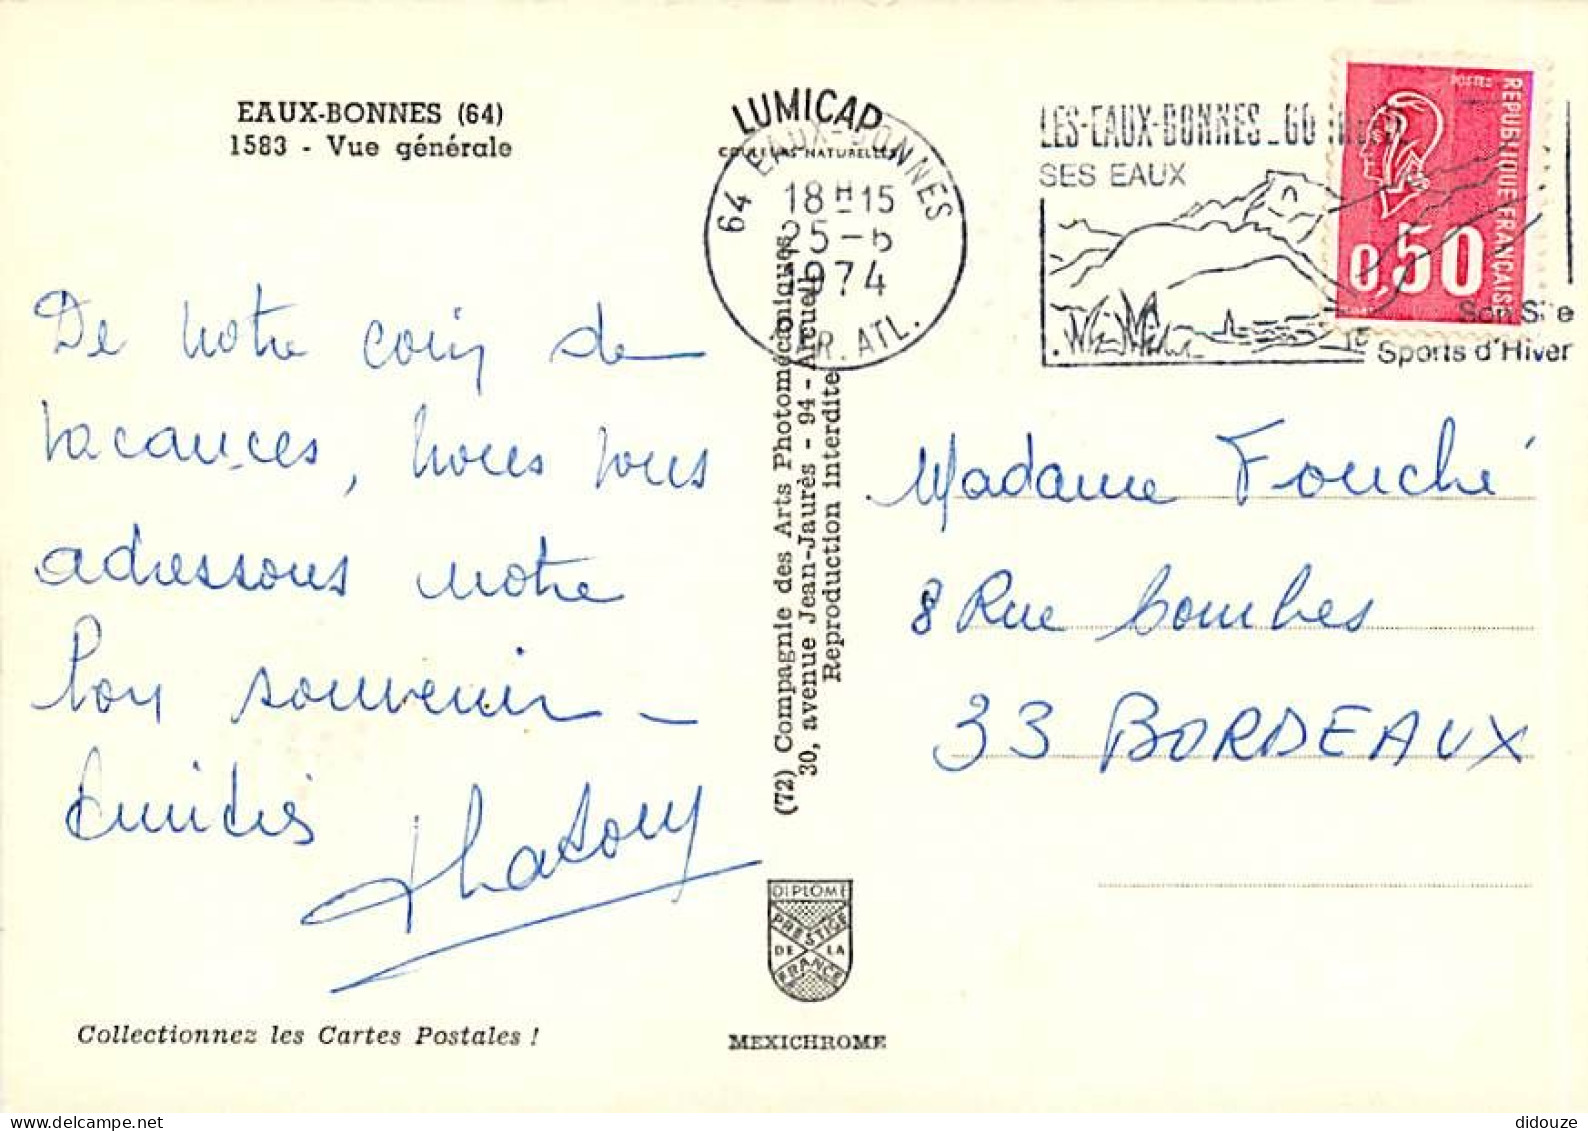 EAUX-BONNES (64)
1583 - Vue générale
LUMICAP
COULEURS NATURELLES
64 EAUX-BONNES
18 H 15
25-6
1974
R. ATL.
LES-EAUX-BONNES
SES EAUX
Son Site
Sports d'Hiver
POSTES
REPUBLIQUE FRANÇAISE
0,50
De notre coin de
vacances, nous vous
adressons notre
bon souvenir -
Amitiés
Madame Fouché
8 Rue Combes
33 BORDEAUX
(72) Compagnie des Arts Photomécaniques
30, avenue Jean-Jaurès - 94 - Arcueil
Reproduction interdite
DIPLOME
PRESTIGE
DE LA
FRANCE
Collectionnez les Cartes Postales !
MEXICHROME
didouze